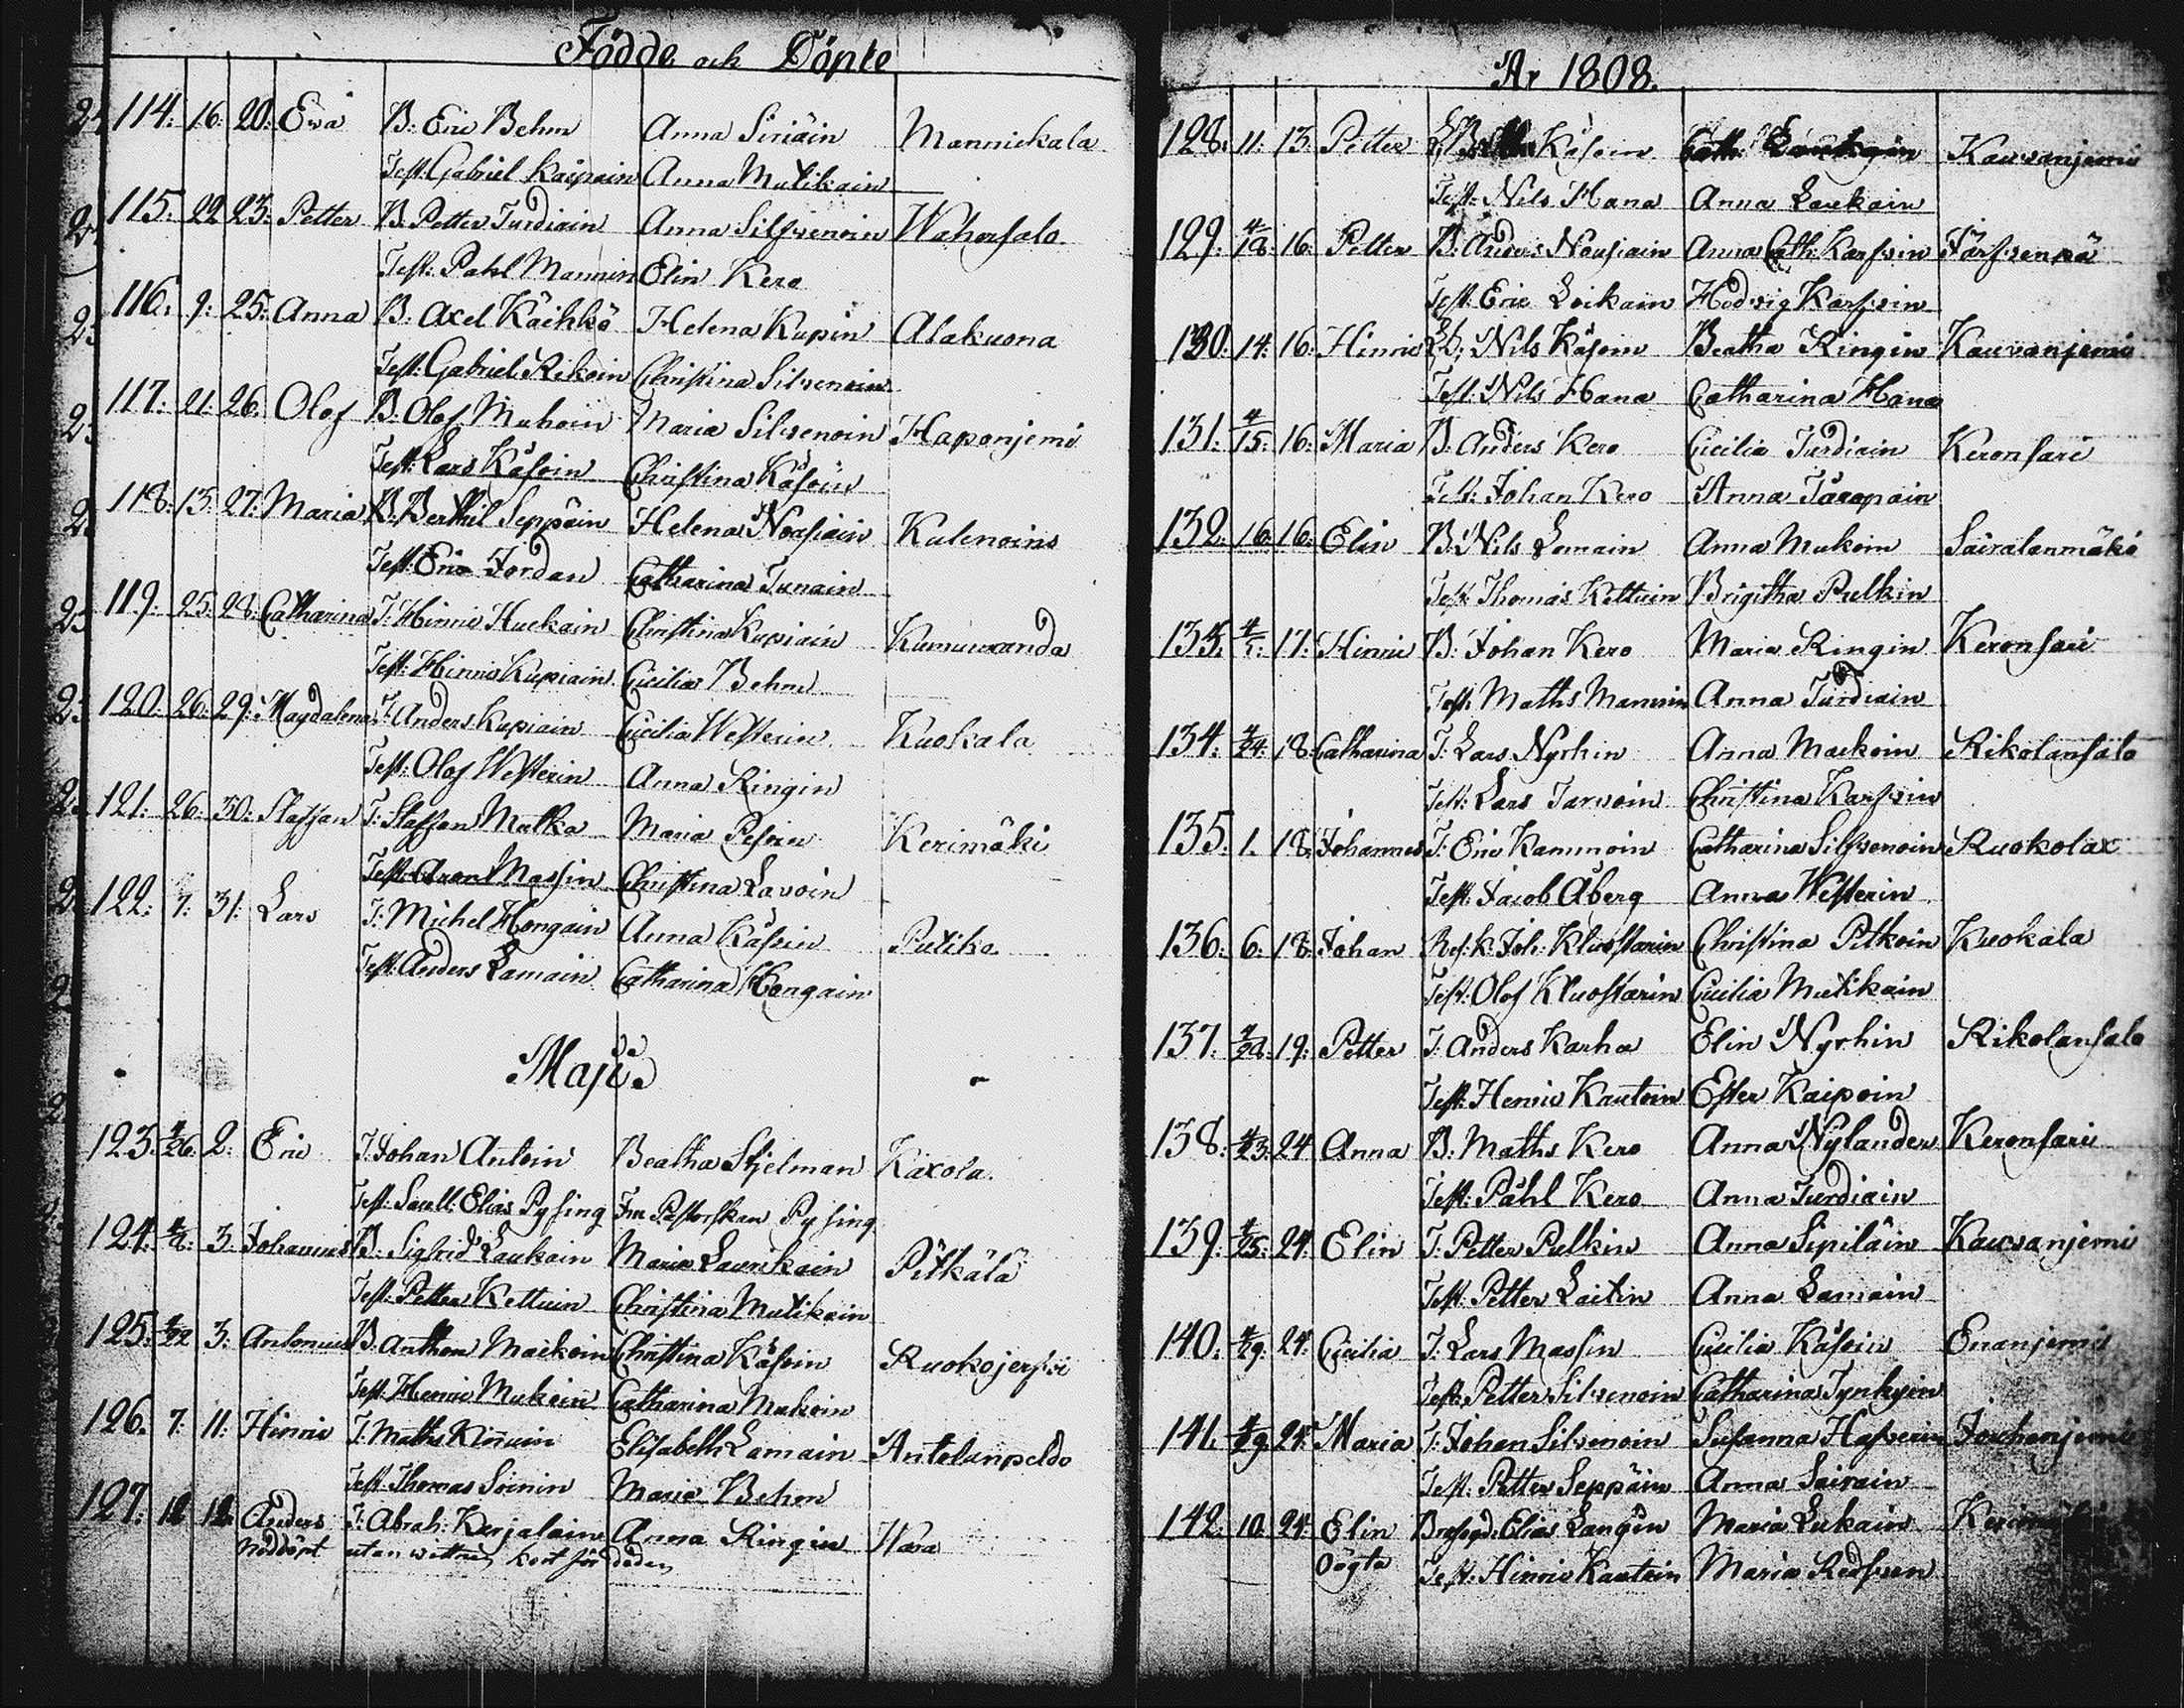 Födde och Döpte
114. 16. 20. Ewa B. Eric Behm Anna Siriäin Mannickala
Test. Gabriel Kaipain Anna Mutikain
115. 22 23. Petter B. Petter Turdiain Anna Silfvenoin Wahersalo
Test. Pahl Mannin Elin Kero
116. 9. 25. Anna B. Axel Käihkö Helena Kupin Alakuona
Test. Gabriel Rikoin Christina Silvenoin
117. 21. 26. Olof B. Olof Muhoin Maria Silvenoin Haponjemi
Test. Lars Käsoin Christina Käsoin
118. 13. 27. Maria B. Berthil Seppäin Helena Noasiain Kulenoins
Test. Eric Jordan Catharina Tunain
119. 25. 28. Catharina T. Hinric Huckain Christina Kupiain
Test. Hinric Kupiain Cicilia Behm
120. 26. 29. Magdalena T. Anders Kupiain Cicilia Westerin Kuokala
Test. Olof Westerin Anna Ringin
121. 26. 30. Staffan T. Staffan Matka Maria Pesoin Kerimäki
Test. Aron Massin Christina Lavoin
122. 7. 31. Lars T. Michel Hongain Anna Käsoin Putiko
Test. Anders Lamain Catharina Hongain
Maji
123. 4/26. 2. Eric T. Johan Antoin Beatha Stjelman Käxola.
Test. Elias Pysing Fru Pastorskan Pysing
124. 4/8. 3. Johannes B. Sigfrid Laukain Maria Laurikain Pitkälä
Test. Petter Kettuin Christina Mutikain
125. 4/22 3. Antonius B. Anthon Mackoin Christina Käsoin Ruokojerfvi
Test. Henric Mukoin Catharina Makoin
126. 7. 11. Hinric T. Maths Kinnuin Elisabeth Lamain Antolanpeldo
Test. Thomas Soinin Maria Behm
127. 12 12. Anders T. Abrah. Kerjalain Anna Ringin Wara
Nöddöpt utan wittnen kort för döden
År 1808.
128. 11. 13. Petter Käsoin Kauvanjemi
Test. Nils Hana Anna Laukain
129. 4/18. 16. Petter B. Anders Nousiain Anna Cath. Karfvin Järfvenpä
Test. Eric Loikain Hedvig Karfvin
130. 14. 16. Hinric Nils Käsoin Beatha Ringin Kauvanjemi
Test. Nils Hana Catharina Hana
131. 4/15. 16. Maria B. Anders Kero Cicilia Turdiain Keronsari
Test. Johan Kero Anna Täropain
132. 16. 16. Elin B. Nils Lamain Anna Mukoin Sairalanmäki
Test. Thomas Kettuin Brigitha Pulkin
133. 4/1. 17. Hinric B. Johan Kero Maria Ringin Keronsari
Test. Maths Mannin Anna Turdiain
134. 4/24. 18. Catharina T. Lars Nyrhin Anna Mackoin Rikolansalo
Test. Lars Tarvoin Christina Karfvin
135. 1. 18. Johannes T. Eric Kammoin Catharina Silfvenoin Ruokolax
Test. Jacob Åberg Anna Westerin
136. 6. 18. Johan Res. k. Joh. Kluostarin Christina Pitkoin Kuokala
Test. Olof Kluostarin Cicilia Mutikain
137. 4/28. 19. Petter T. Anders Karha Elin Nyrhin Rikolansalo
Test. Henric Kautoin Ester Kaipoin
138. 4/23. 24. Anna B. Maths Kero Anna Nylander Keronsari
Test. Påhl Kero Anna Turdiain
139. 4/25. 24. Elin T. Petter Pulkin Anna Sipiläin Kauvanjemi
Test. Petter Laitin Anna Lamain
140. 4/29. 24. Cicilia T. Lars Massin Cicilia Käsoin Enanjemi
Test. Petter Silvenoin Catharina Tynkyin
141. 4/29. 24. Maria T. Johan Silvenoin Susanna Hafverin
Test. Petter Seppäin Anna Sairain
142. 10. 24. Elin Elias Langén Maria Lukain
Oägta Test. Hinric Kautoin Maria Redfven